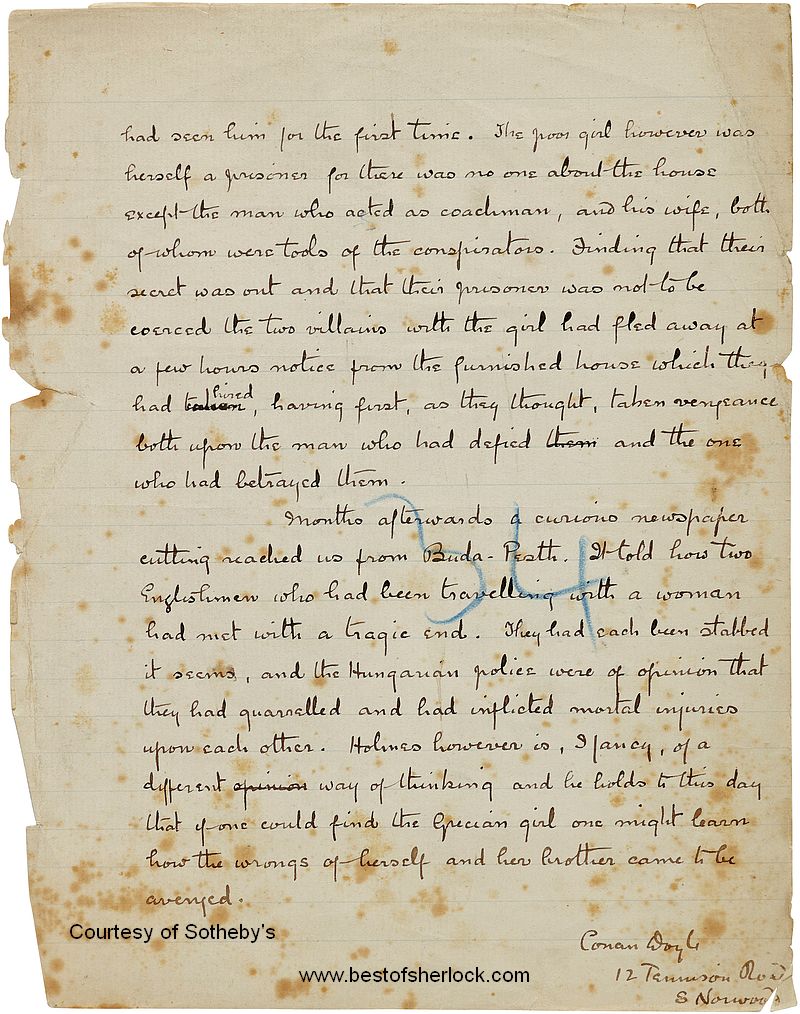 had seen him for the first time. The poor girl however was
herself a prisoner for there was no one about the house
except the man who acted as coachman, and his wife, both
of whom were tools of the conspirators. Finding that their
secret was out and that their prisoner was not to be
coerced the two villains with the girl had fled away at
a few hours notice from the furnished house which they
had taken hired, having first, as they thought, taken vengeance
both upon the man who had defied them and the one
who had betrayed them.
Months afterwards a curious newspaper
cutting reached us from Buda-Pesth. It told how two
Englishmen who had been travelling with a woman
had met with a tragic end. They had each been stabbed
it seems, and the Hungarian police were of opinion that
they had quarrelled and had inflicted mortal injuries
upon each other. Holmes however is, I fancy, of a
different opinion way of thinking and he holds to this day
that if one could find the Grecian girl one might learn
how the wrongs of herself and her brother came to be
avenged.
34
Conan Doyle
12 Tennison Road
S Norwood
Courtesy of Sotheby's
www.bestofsherlock.com